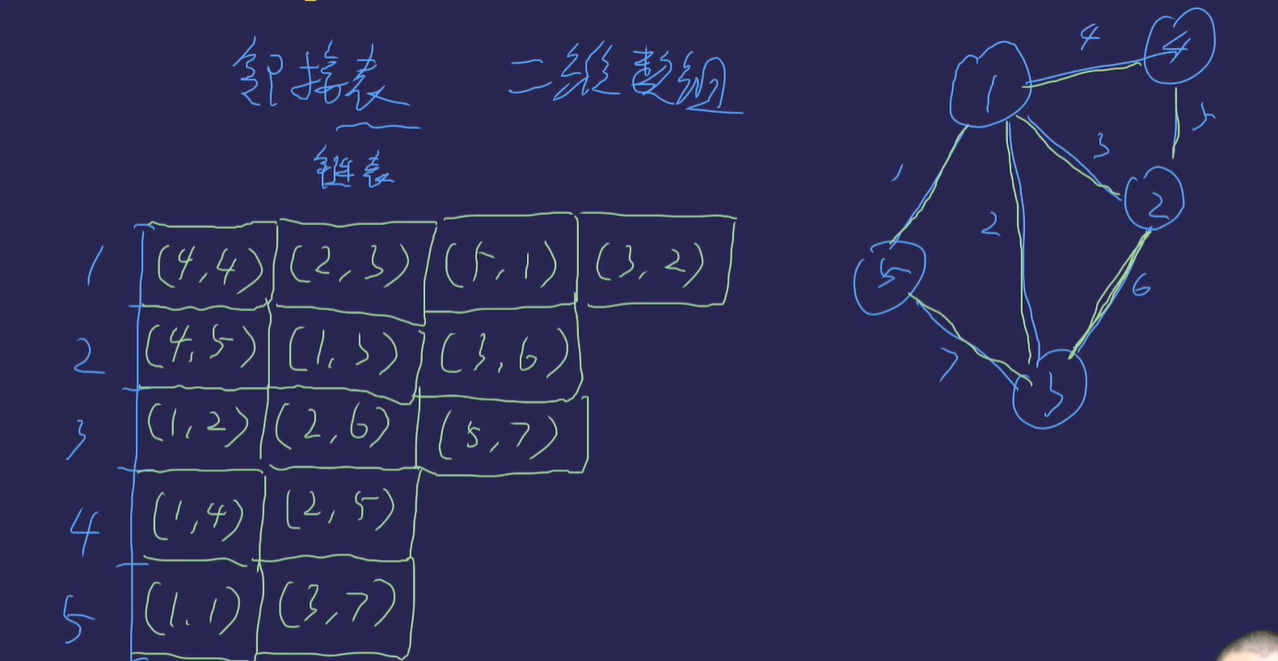 邻接表 二维数组
链表
1 (4,4) (2,3) (5,1) (3,2)
2 (4,5) (1,3) (3,6)
3 (1,2) (2,6) (5,7)
4 (1,4) (2,5)
5 (1.1) (3,7)
4 4
1
5
3
1 2
2
5 6
7 3